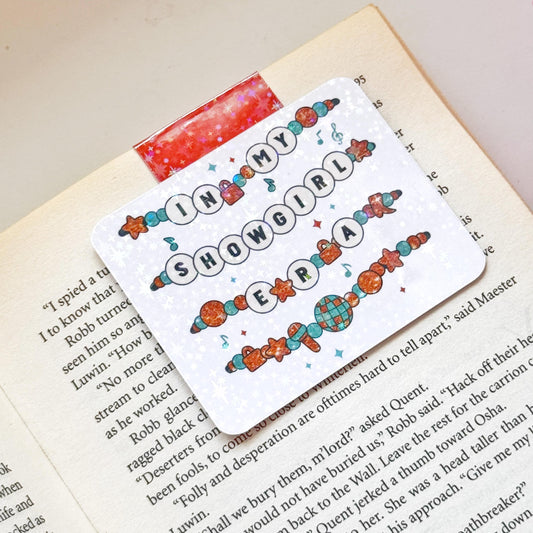 IN MY
SHOWGIRL
ERA
95
"I spied a tu
I to know that
Robb turned
seen him so an
Luwin. "How b
"No more
stream to clean
as he worked.
Robb glance
ragged black d
"Deserters from
been fools, to come so close to Winterfell."
"Folly and desperation are ofttimes hard to tell apart," said Maester
Luwin.
"Shall we bury them, m'lord?" asked Quent.
would not have buried us," Robb said. "Hack off their he
back to the Wall. Leave the rest for the carrion c
Quent jerked a thumb toward Osha.
to her. She was a head taller than h
his approach. "Give me my l
eathbreaker?"
ok
when
ife and
cked as